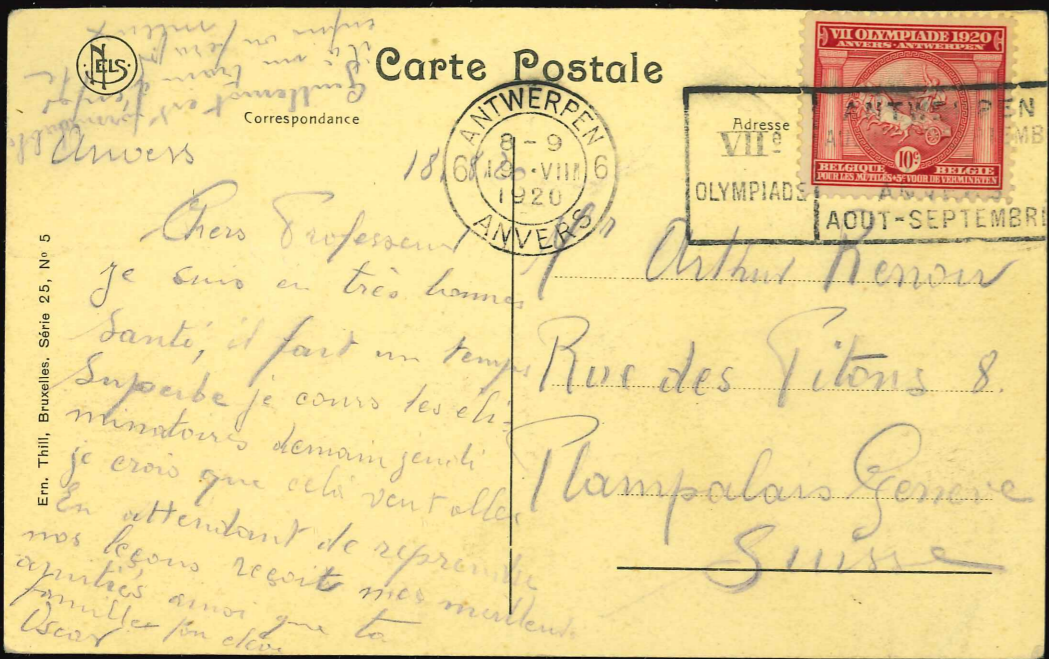 NELS
Carte Postale
Correspondance
Adresse
Ern. Thill, Bruxelles. Série 25, No 5
VII OLYMPIADE 1920
ANVERS-ANTWERPEN
10c
BELGIQUE BELGIE
POUR LES MUTILES+5c VOOR DE VERMINKTEN
ANTWERPEN
8-9
6 19 ·VIII 6
1920
ANVERS
VIIe
OLYMPIADS
ANTWERPEN
AOUT-SEPTEMBR
Anvers 18.8.20
Chers Professeur
je suis en très bonnes
Santé, il fait un temps
Superbe je cours les éli-
minatoires demain jeudi
je crois que celà veut aller
En attendant de reprendre
nos leçons reçoit mes meilleurs
amitiés ainsi que ta
famille ton
Oscar
Mr Arthur Renoir
Rue des Pitons 8.
Plampalais Genève
Suisse